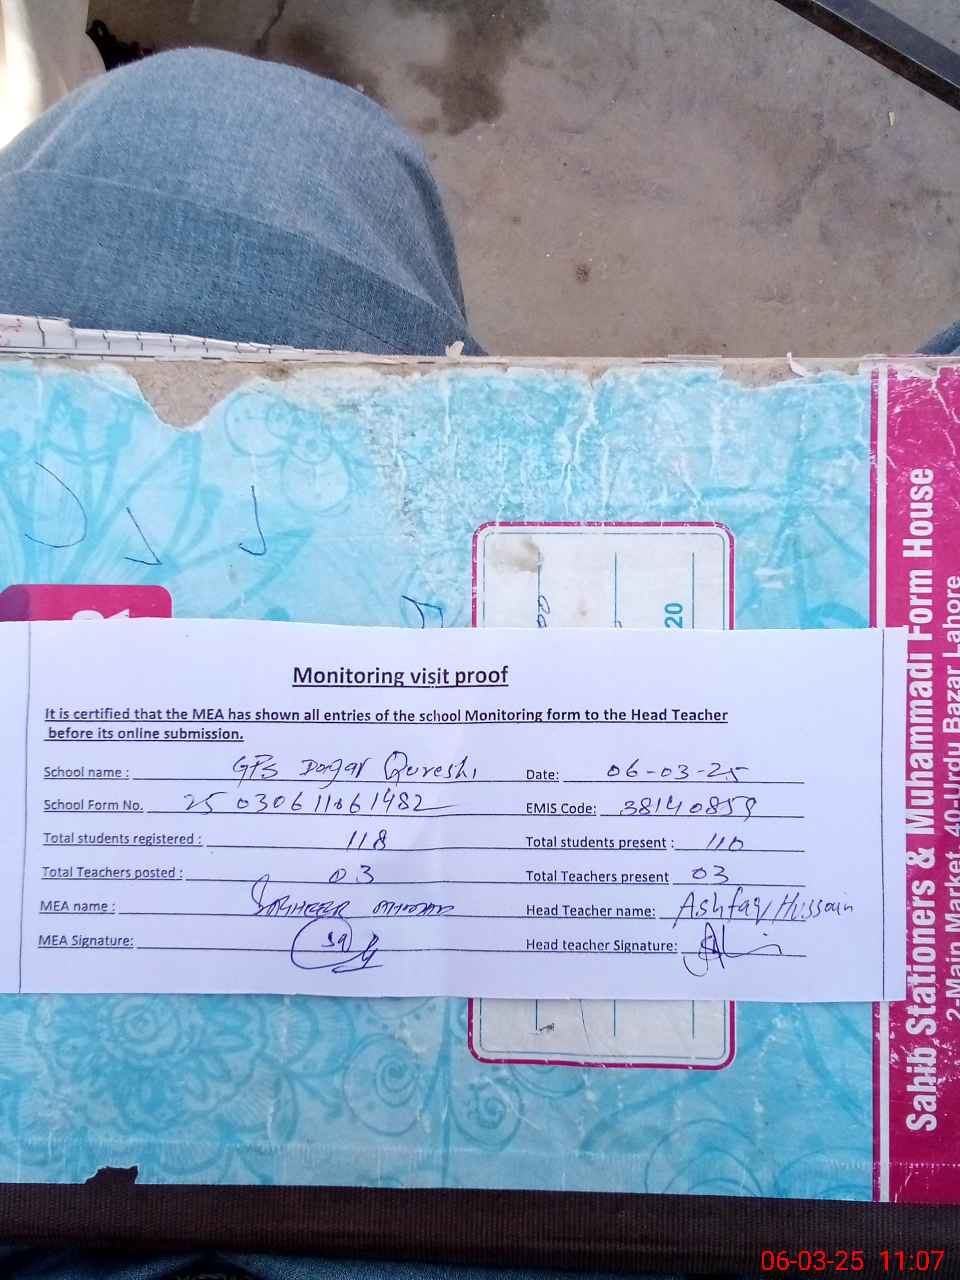 Monitoring visit proof
It is certified that the MEA has shown all entries of the school Monitoring form to the Head Teacher
before its online submission.
School name : GPS Dogar Qureshi Date: 06-03-25
School Form No. 25030611061482 EMIS Code: 38140859
Total students registered : 118 Total students present : 110
Total Teachers posted : 03 Total Teachers present 03
MEA name : Head Teacher name: Ashfaq Hussain
MEA Signature: Head teacher Signature:
20
Sahib Stationers & Muhammadi Form House
2-Main Market, 40-Urdu Bazar Lahore
06-03-25 11:07